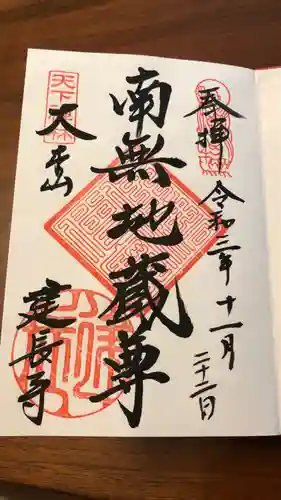 奉拝
令和三年十一月
二十二日
南無地蔵尊
天下
大本山
建長寺